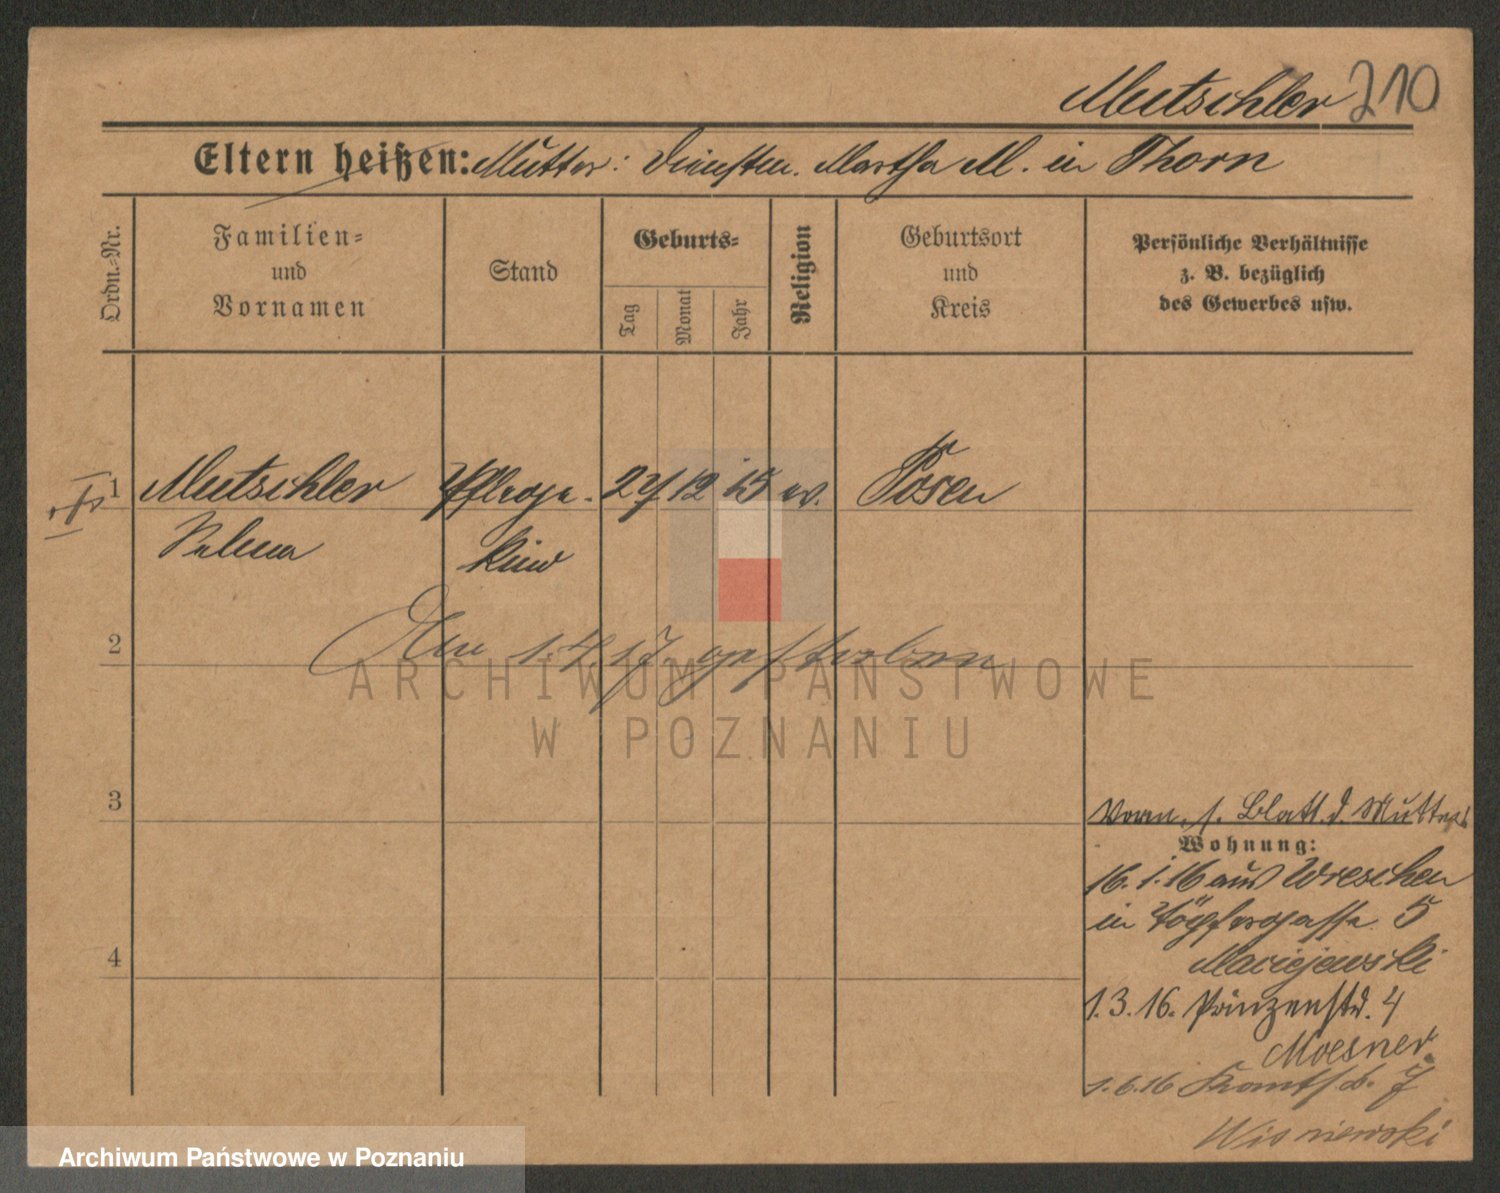 Mutschler 210
Eltern heißen: Mutter: Dienstm. Martha M. in Thorn
Ordn.-Nr.
Familien-
und
Vornamen
Stand
Geburts-
Tag
Monat
Jahr
Religion
Geburtsort
und
Kreis
Persönliche Verhältnisse
z. B. bezüglich
des Gewerbes usw.
1 Mutschler Pflege- 27 12 15 ev. Posen
Selma kind
2
Am 1.4.17 gestorben
ARCHIWUM PAŃSTWOWE
W POZNANIU
3
Vorm. s. Blatt d. Mutter
Wohnung:
16.1.16 aus Wreschen
in Töpfergasse 5
4
Maciejewski
1.3.16. Prinzenstr. 4
Moesner
1.6.16 7
Wisniewski
Archiwum Państwowe w Poznaniu